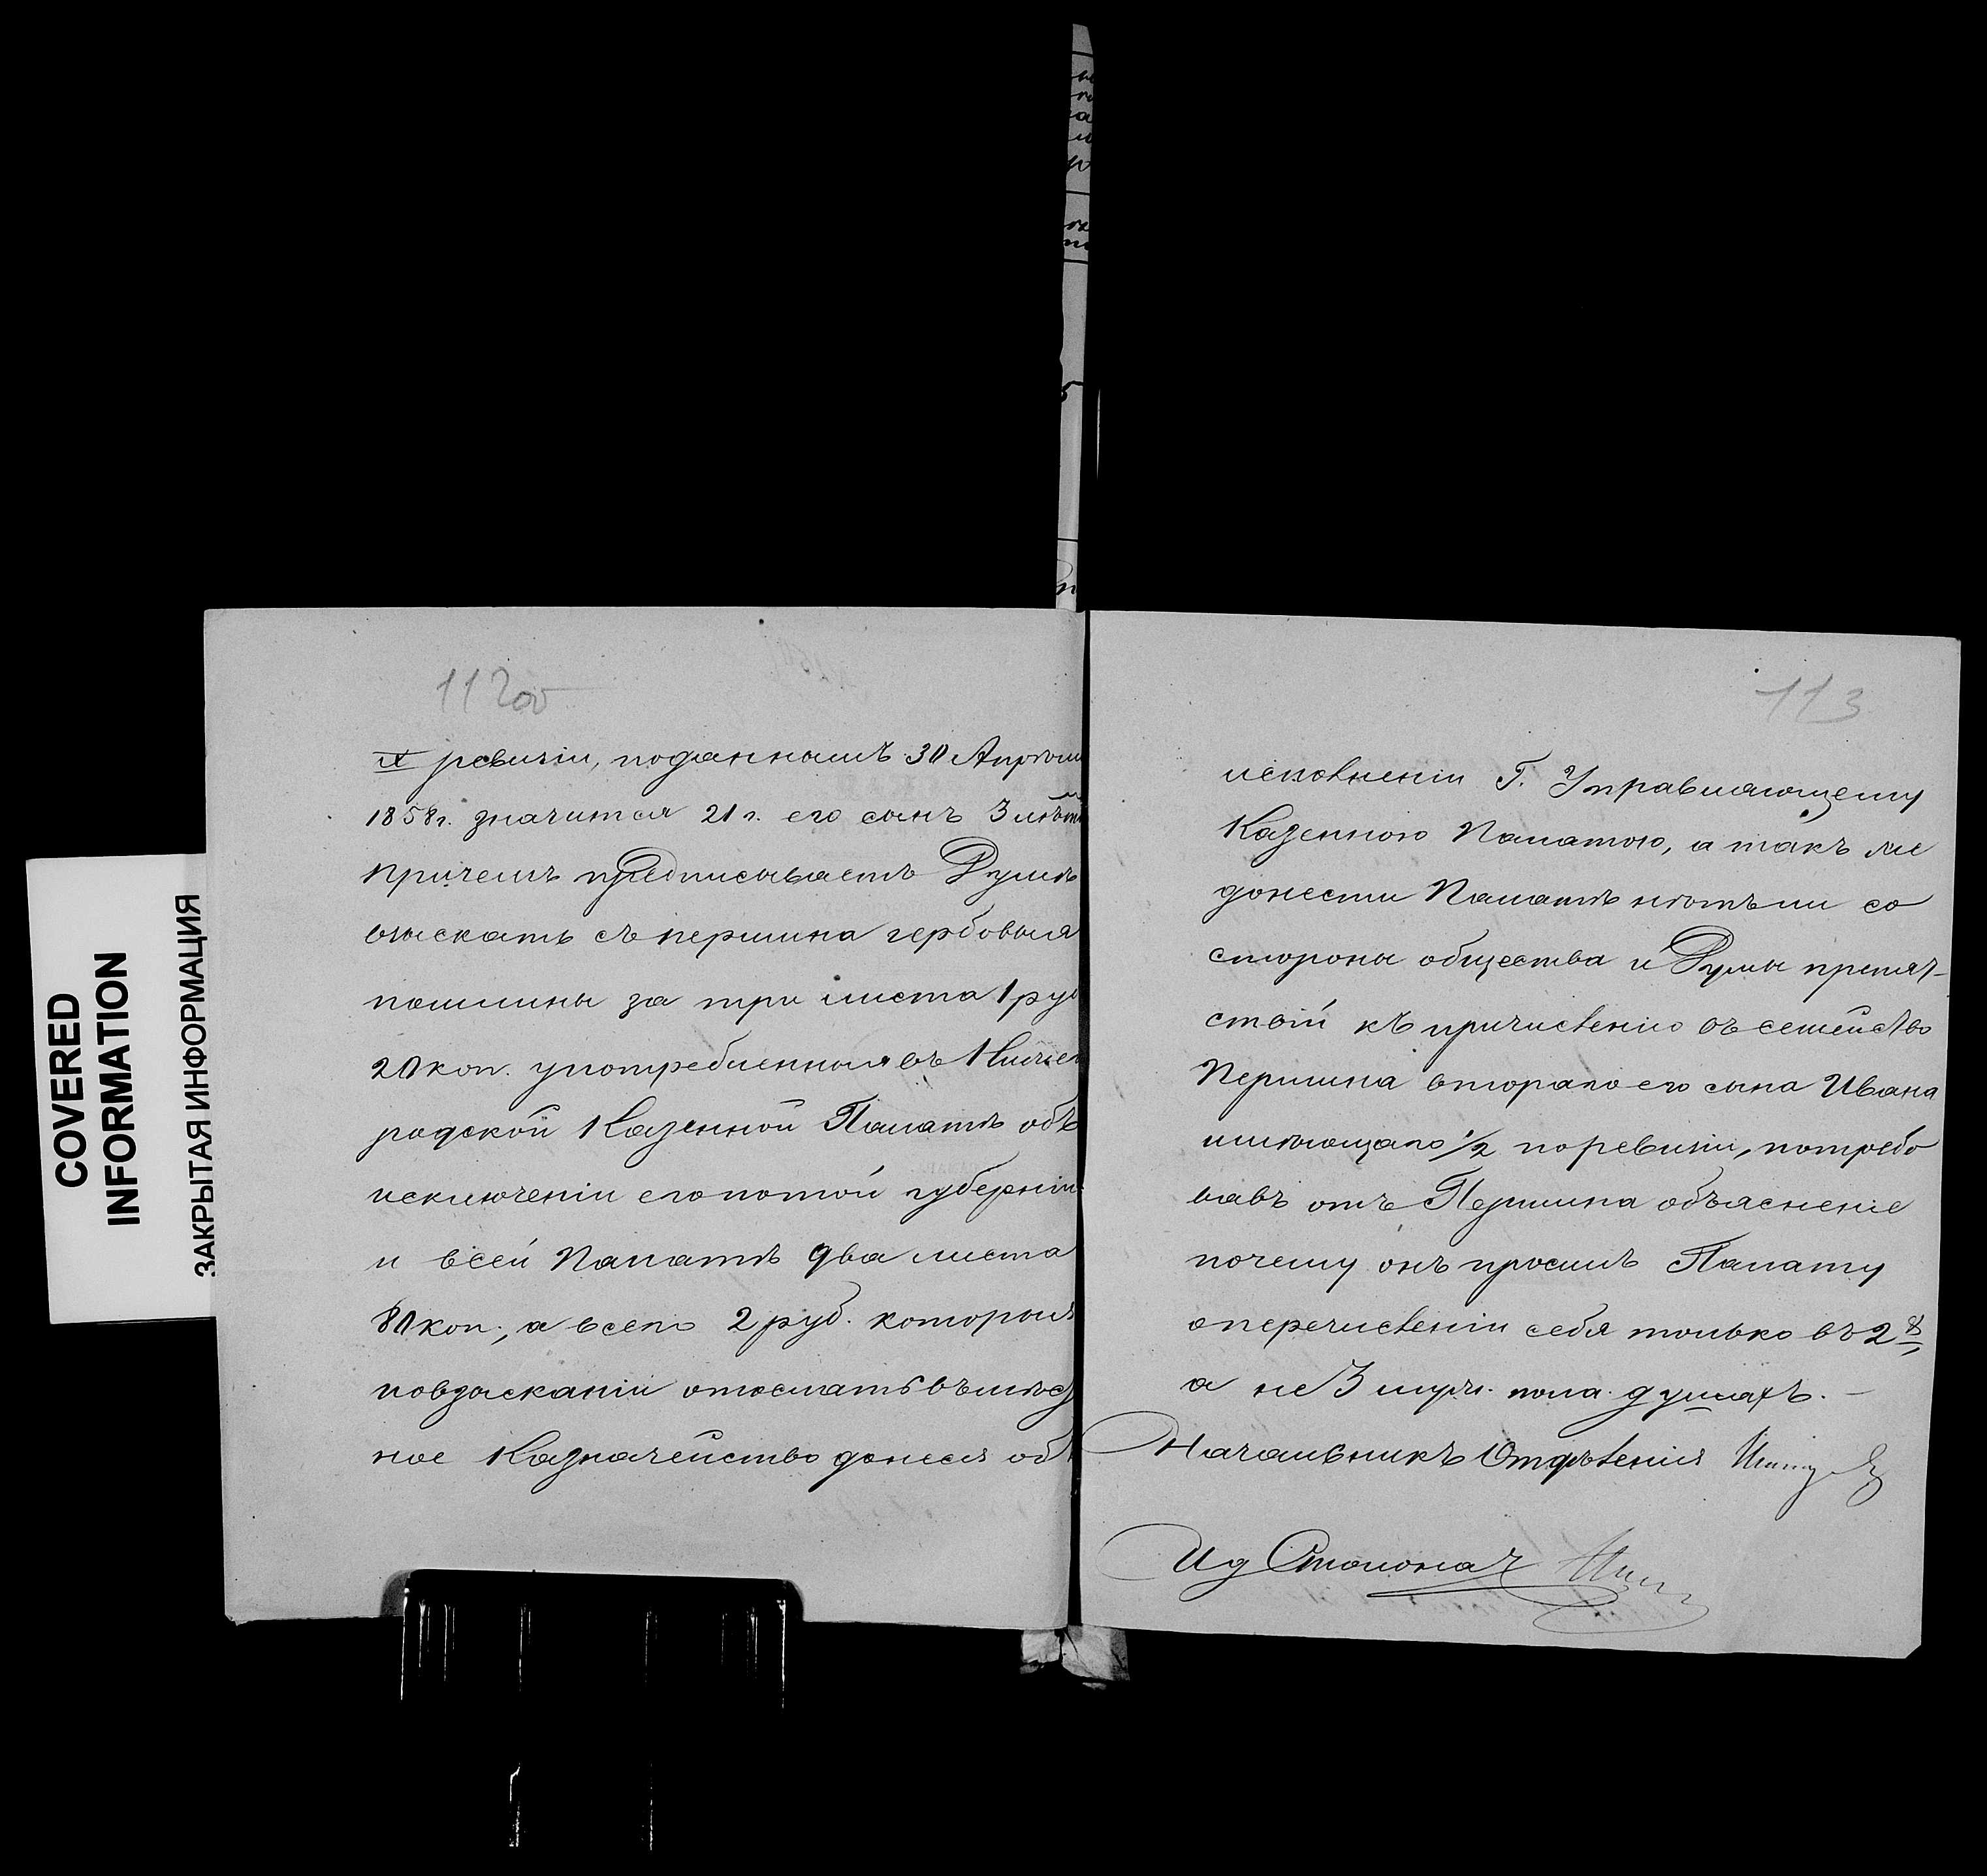 COVERED
INFORMATION
ЗАКРЫТАЯ ИНФОРМАЦИЯ
112об
IX ревизіи, поданнымъ 30 Апрѣля
1858г. значится 21 г. его сынъ 3 лѣтъ
причемъ предписываетъ Думѣ
взыскать съ першина гербовыя
пошлины за три листа 1 руб
20 коп. употребленныя въ Нижего
родской Казенной Палатѣ объ
исключеніи его потой губерніи
и всей Палатѣ два листа
80 коп., а всего 2 руб. которыя
повзысканіи отослать въ мѣст
ное Казначейство донеся объ
113
исполненіи Г. Управляющему
Казенною Палатою, а такъ же
донести Палатѣ нѣтъ ли со
стороны общества и Думы препят-
ствій къ причисленію въ семейство
Першина втораго его сына Ивана
имѣющаго 1/2 поревизіи, потребо
вавъ отъ Першина объясненіе
почему онъ проситъ Палату
оперечисленіи себя только въ 2х
а не 3 муж. пола душахъ. —
Начальникъ Отдѣленія
Ид Столонач